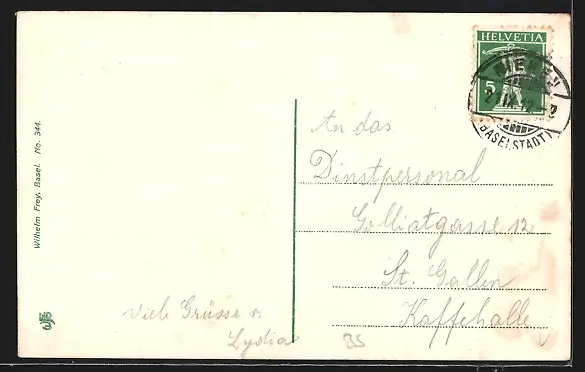 HELVETIA
5
RIEHEN
(BASELSTADT)
Wilhelm Frey, Basel. No. 344.
An das
Dinstpersonal
Golliatgasse 12
St. Gallen
Kaffehalle
Viele Grüsse v.
Lydia
BS